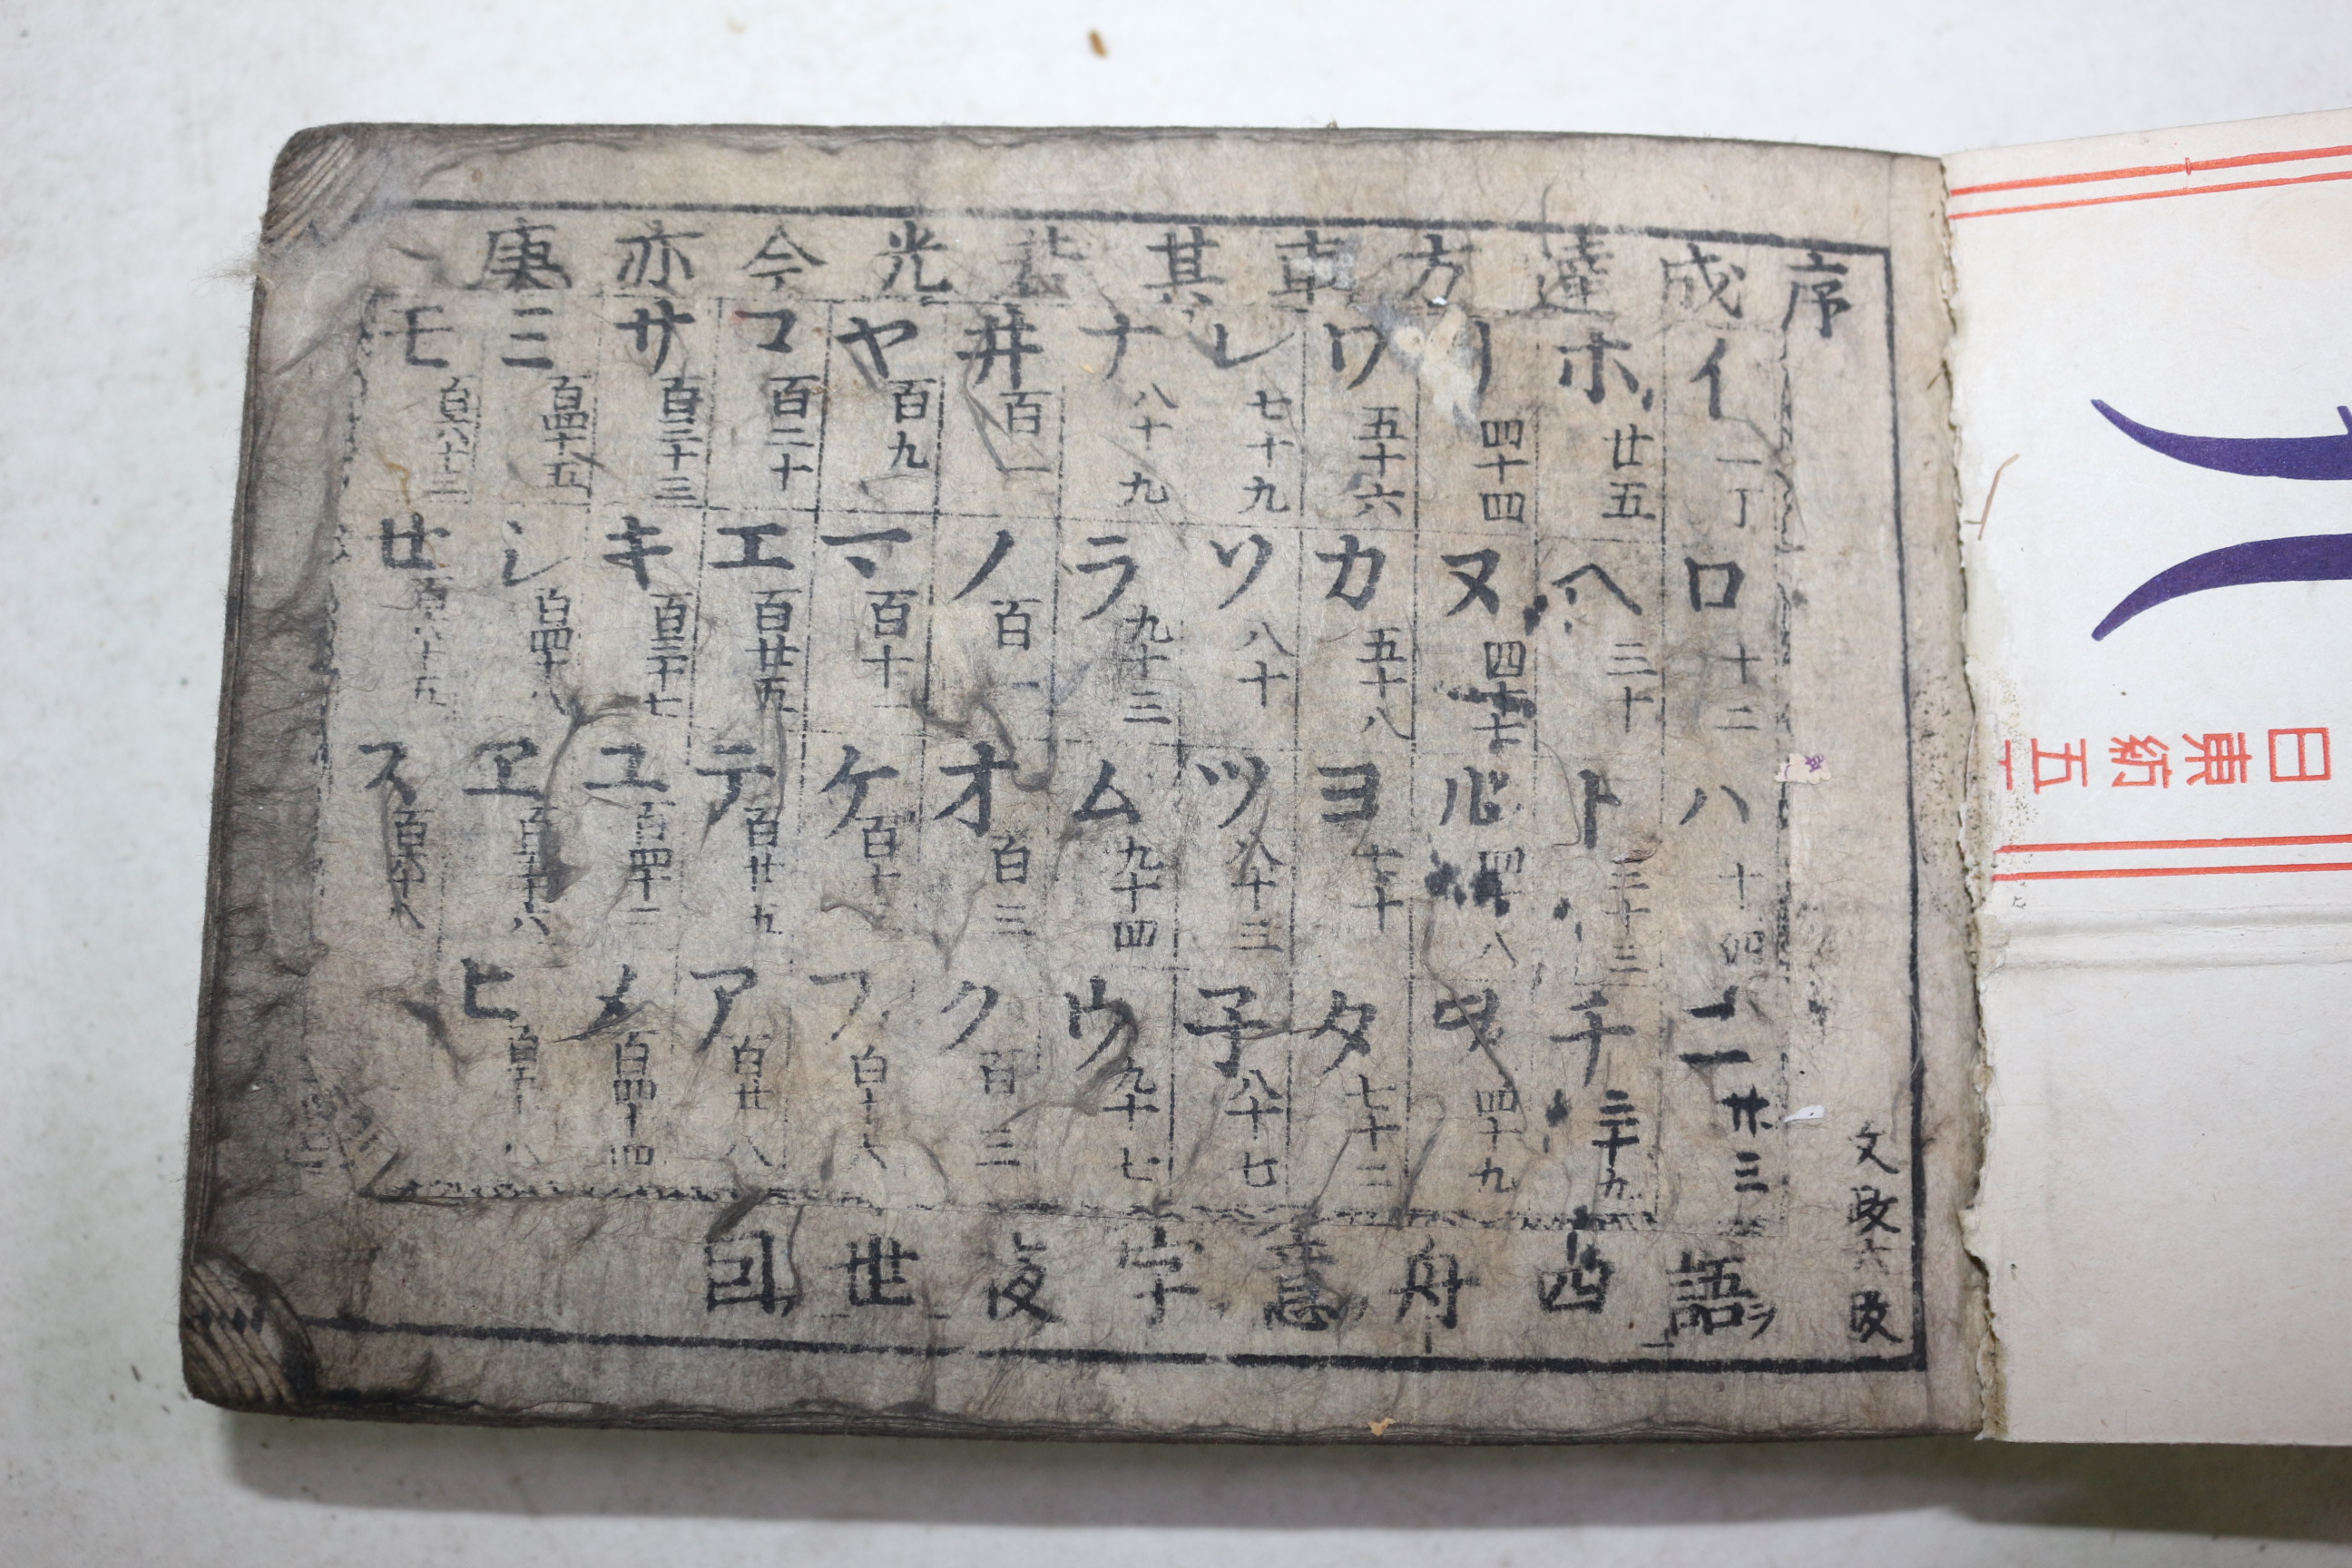 序
文政六改
成達方其光今亦庚
イ 一丁
ロ 十二
ハ 十四
ニ 廿三
ホ 廿五
ヘ 三十
ト 三十三
チ 三十九
リ 四十四
ヌ 四十七
ル 四十八
ヲ 四十九
ワ 五十六
カ 五十八
ヨ 七十
タ 七十二
レ 七十九
ソ 八十
ツ 八十三
子 八十七
ナ 八十九
ラ 九十三
ム 九十四
ウ 九十七
井 百一
ノ 百一
オ 百三
ク 百三
ヤ 百九
マ 百十一
ケ 百十
フ 百十八
コ 百二十
エ 百廿五
テ 百廿五
ア 百廿八
サ 百三十三
キ 百三十七
ユ 百四十二
メ 百四十四
ミ 百四十五
シ 百四十八
ヱ 百五十六
ヒ 百五十八
モ 百六十三
せ 百六十五
ス 百六十九
語 西 舟 字 世
日東紡 五一